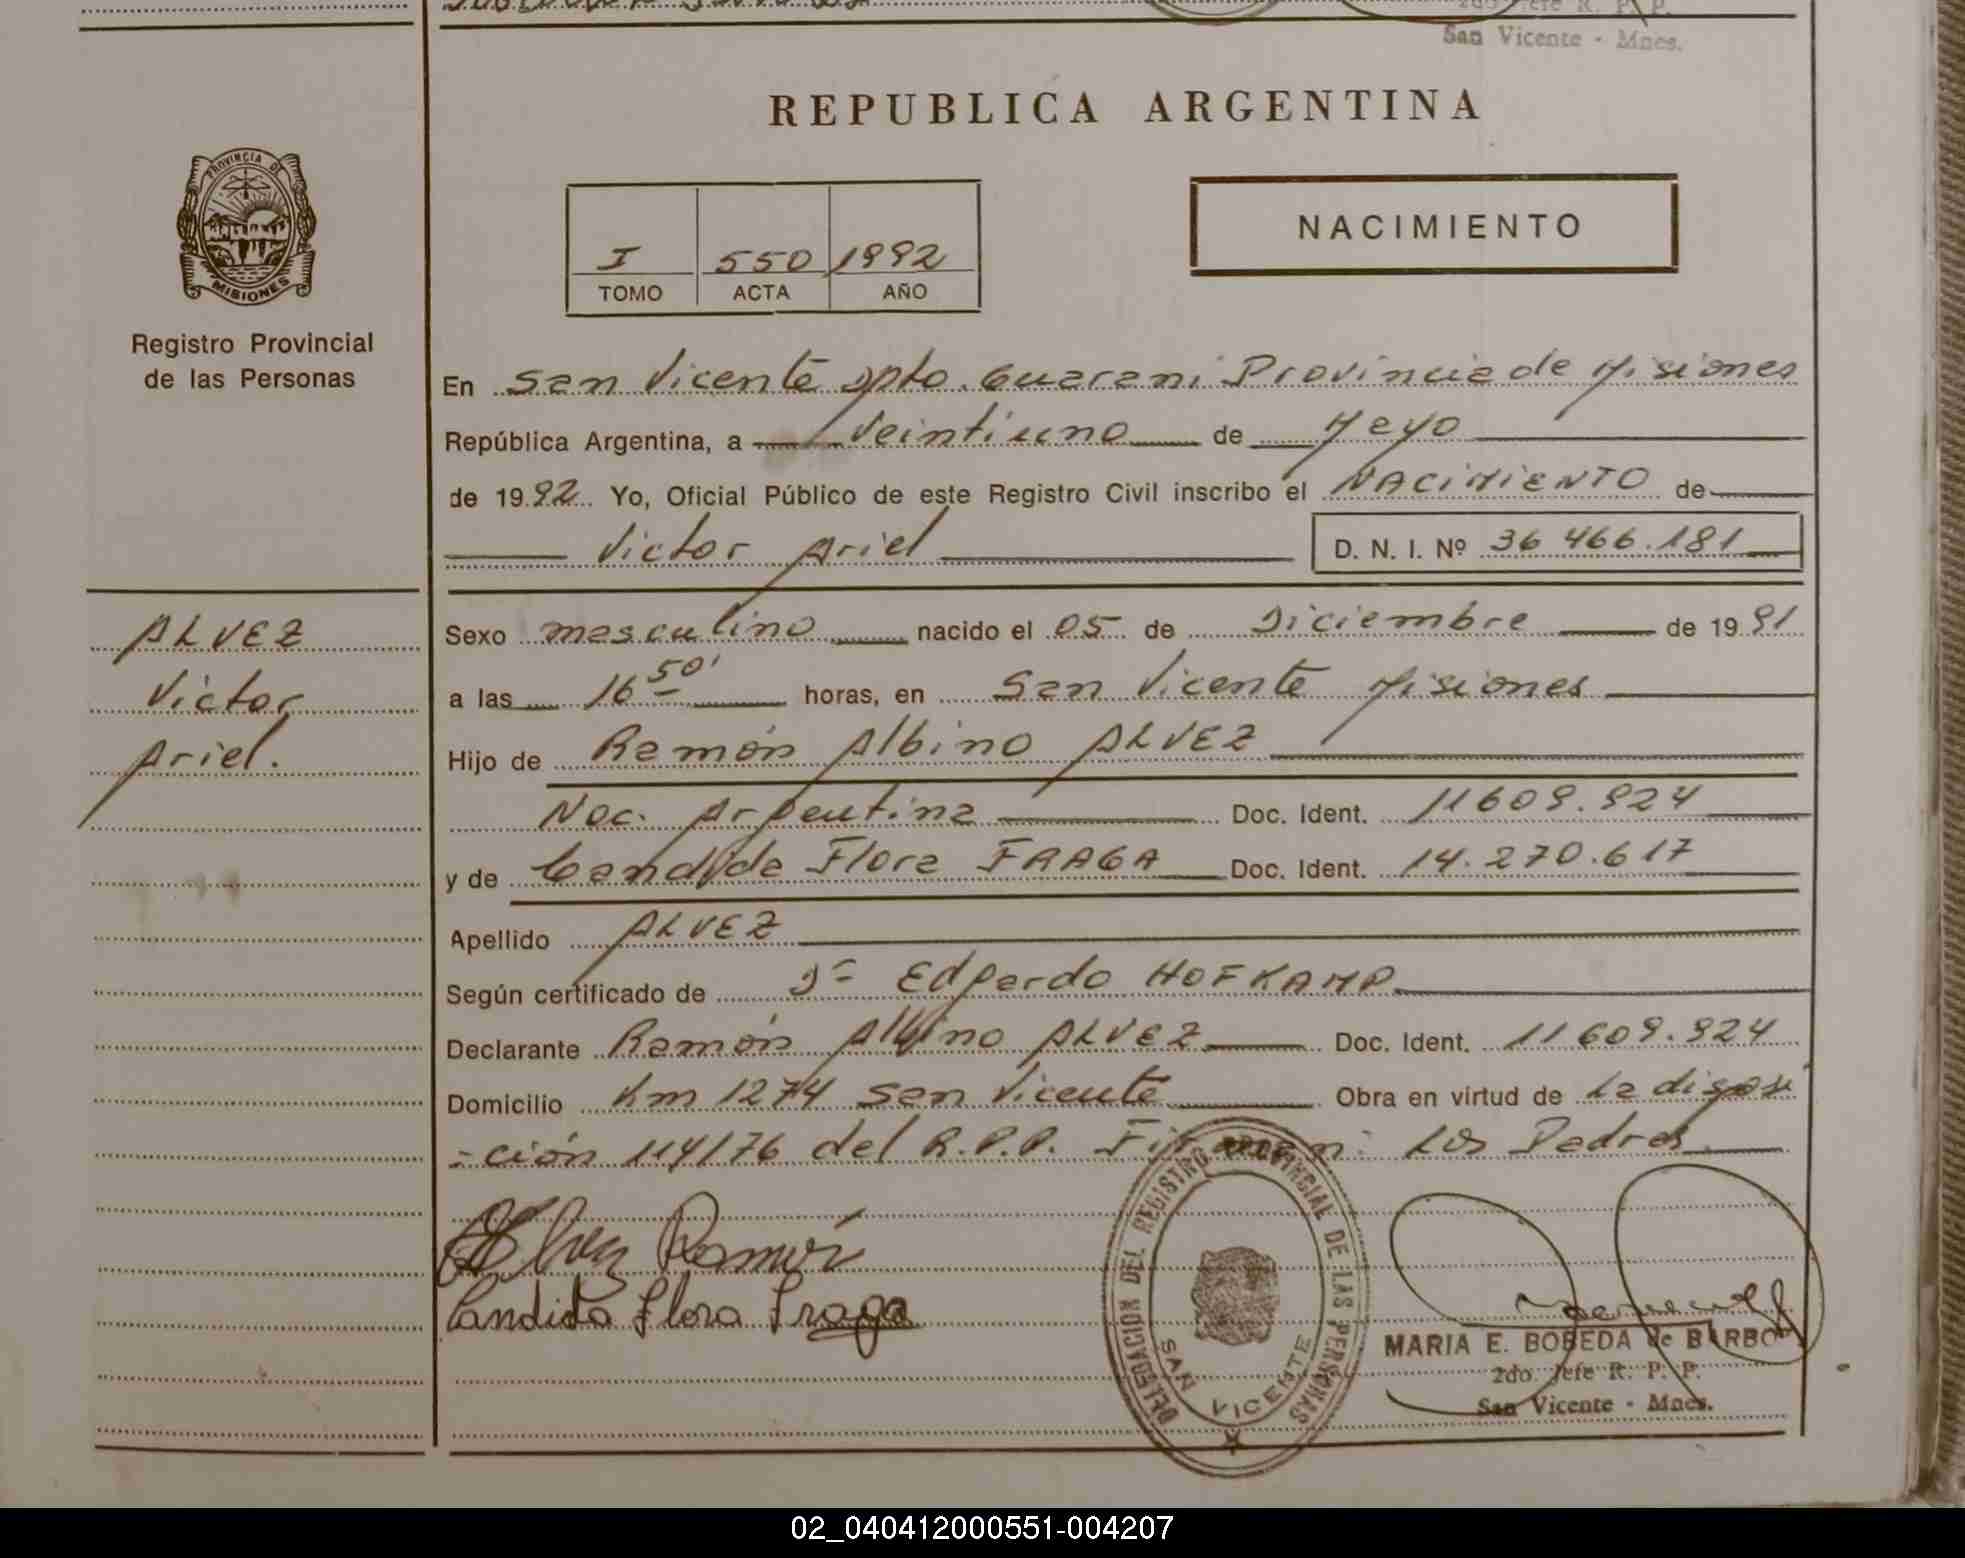 2do Jefe R. P. P.
San Vicente - Mnes.
REPUBLICA ARGENTINA
PROVINCIA DE
MISIONES
Registro Provincial
de las Personas
I 550 1992
TOMO ACTA AÑO
NACIMIENTO
En San Vicente Dpto. Guarani Provincia de Misiones
República Argentina, a veintiuno de Mayo
de 1992. Yo, Oficial Público de este Registro Civil inscribo el NACIMIENTO de
Victor Ariel D. N. I. Nº 36 466.181
ALVEZ
Victor
Ariel.
Sexo masculino nacido el 05 de Diciembre de 1991
a las 16 50' horas, en San Vicente Misiones
Hijo de Ramón Albino ALVEZ
Nac. Argentina Doc. Ident. 11609.924
y de Candida Flora FRAGA Doc. Ident. 14.270.617
Apellido ALVEZ
Según certificado de Dr Edgardo HOFKAMP
Declarante Ramón Albino ALVEZ Doc. Ident. 11609.924
Domicilio Km 1274 San Vicente Obra en virtud de La disposi
-ción 114/76 del R.P.P. Firman: Los Padres
Alvez Ramón
Candida Flora Fraga
DELEGACION DEL REGISTRO PROVINCIAL DE LAS PERSONAS
SAN VICENTE
MARIA E. BOBEDA de BARBO
2do. Jefe R. P. P.
San Vicente - Mnes.
02_040412000551-004207